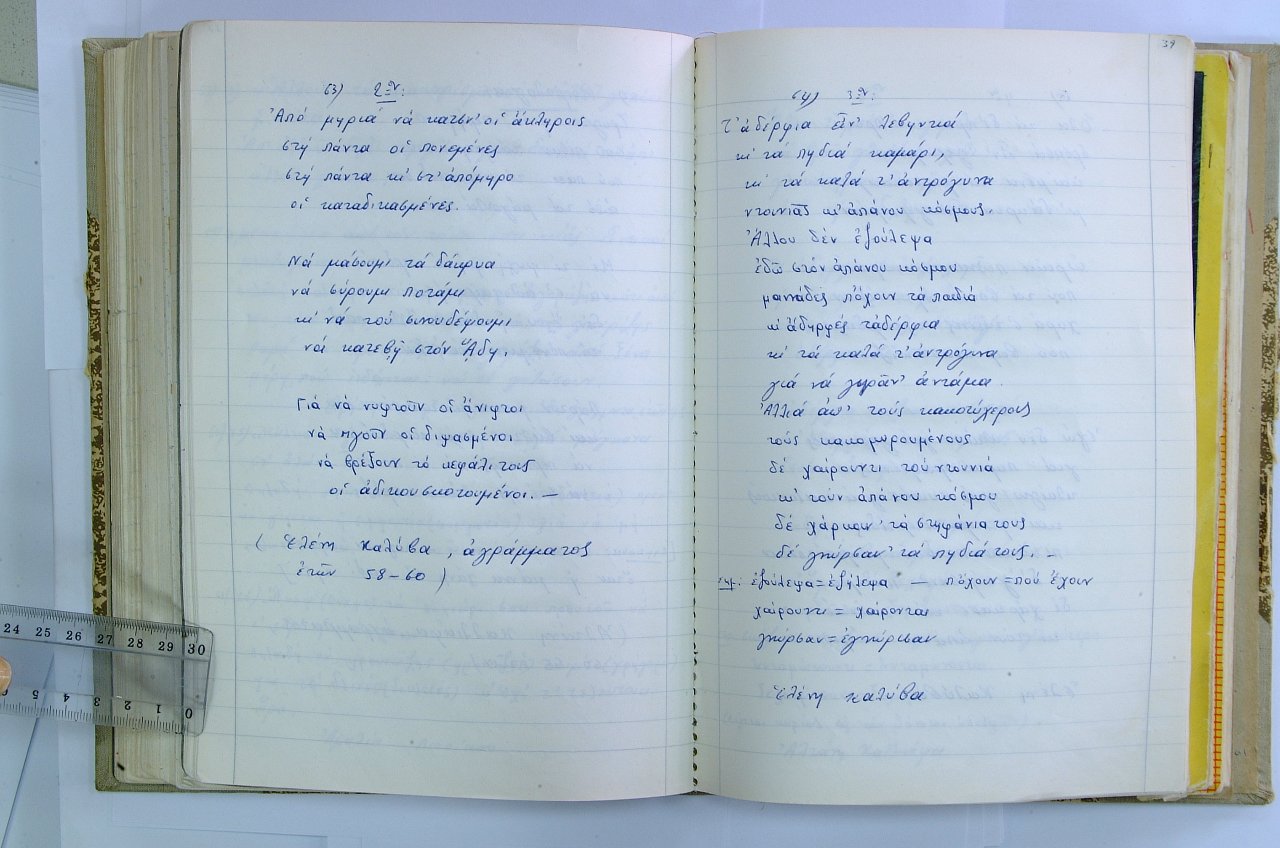 63) 2ον:
Ἀπό μηριά νά κατσν' οἱ ἄκληροις
στή πάντα οἱ πονεμένες
στή πάντα κι' στ' ἀπόμηρο
οἱ καταδικασμένες.
Νά μάσουμι τά δάκρυα
νά σύρουμι ποτάμι
κι' νά τού συνουδέψουμι
νά κατεβῇ στόν Ἅδη.
Γιά νά νιφτοῦν οἱ ἄνιφτοι
νά πιοῦν οἱ διψασμένοι
νά βρέξουν τό κεφάλι τους
οἱ ἀδικουσκοτουμένοι. —
( Ἑλένη Καλύβα, ἀγράμματος
ἐτῶν 58-60 )
39
64) 3ον:
Τ' ἀδέρφια εἶν' λεβηντιά
κι' τά πηδιά καμάρι,
κι' τά καλά τ' ἀντρόγυνα
ντουνιᾶς κι' ἀπάνου κόσμους.
Ἄλλου δέν ἐζούλεψα
ἐδῶ στόν ἀπάνου κόσμου
μαννάδες πὄχουν τά παιδιά
κι' ἀδηρφές τἀδέρφια
κι' τά καλά τ' ἀντρόγυνα
γιά νά γηρᾶν' ἀντάμα.
Ἀλλιά ἀπ' τούς κακοτύχερους
τούς κακομοιρουμένους
δέ χαίρουντι τού ντουνιά
κι' τουν ἀπάνου κόσμου
δέ χάρκαν' τά στηφάνια τους
δέ γνώρσαν' τά πηδιά τους. —
Σημ: ἐζούλεψα = ἐζήλεψα — πὄχουν = πού ἔχουν
χαίρουντι = χαίρονται
γνώρσαν = ἐγνώρισαν
Ἑλένη Καλύβα
24 25 26 27 28 29 30
5 4 3 2 1 0